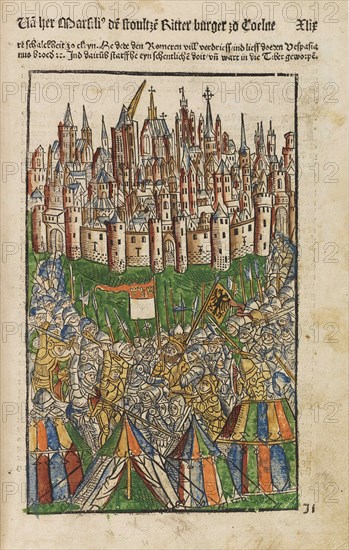 Uã her Marsiliº dē stoultzē Ritter burger zo Coelne XLIX
re schalckheit zo cleyn. He dede den Romeren vill verdrieß ind lieſſ doeren Vespasia
nus broed ꝛc̄ Ind dairūb starff he eyn schentlichē doit / vñ wart in die Tiber geworpē.